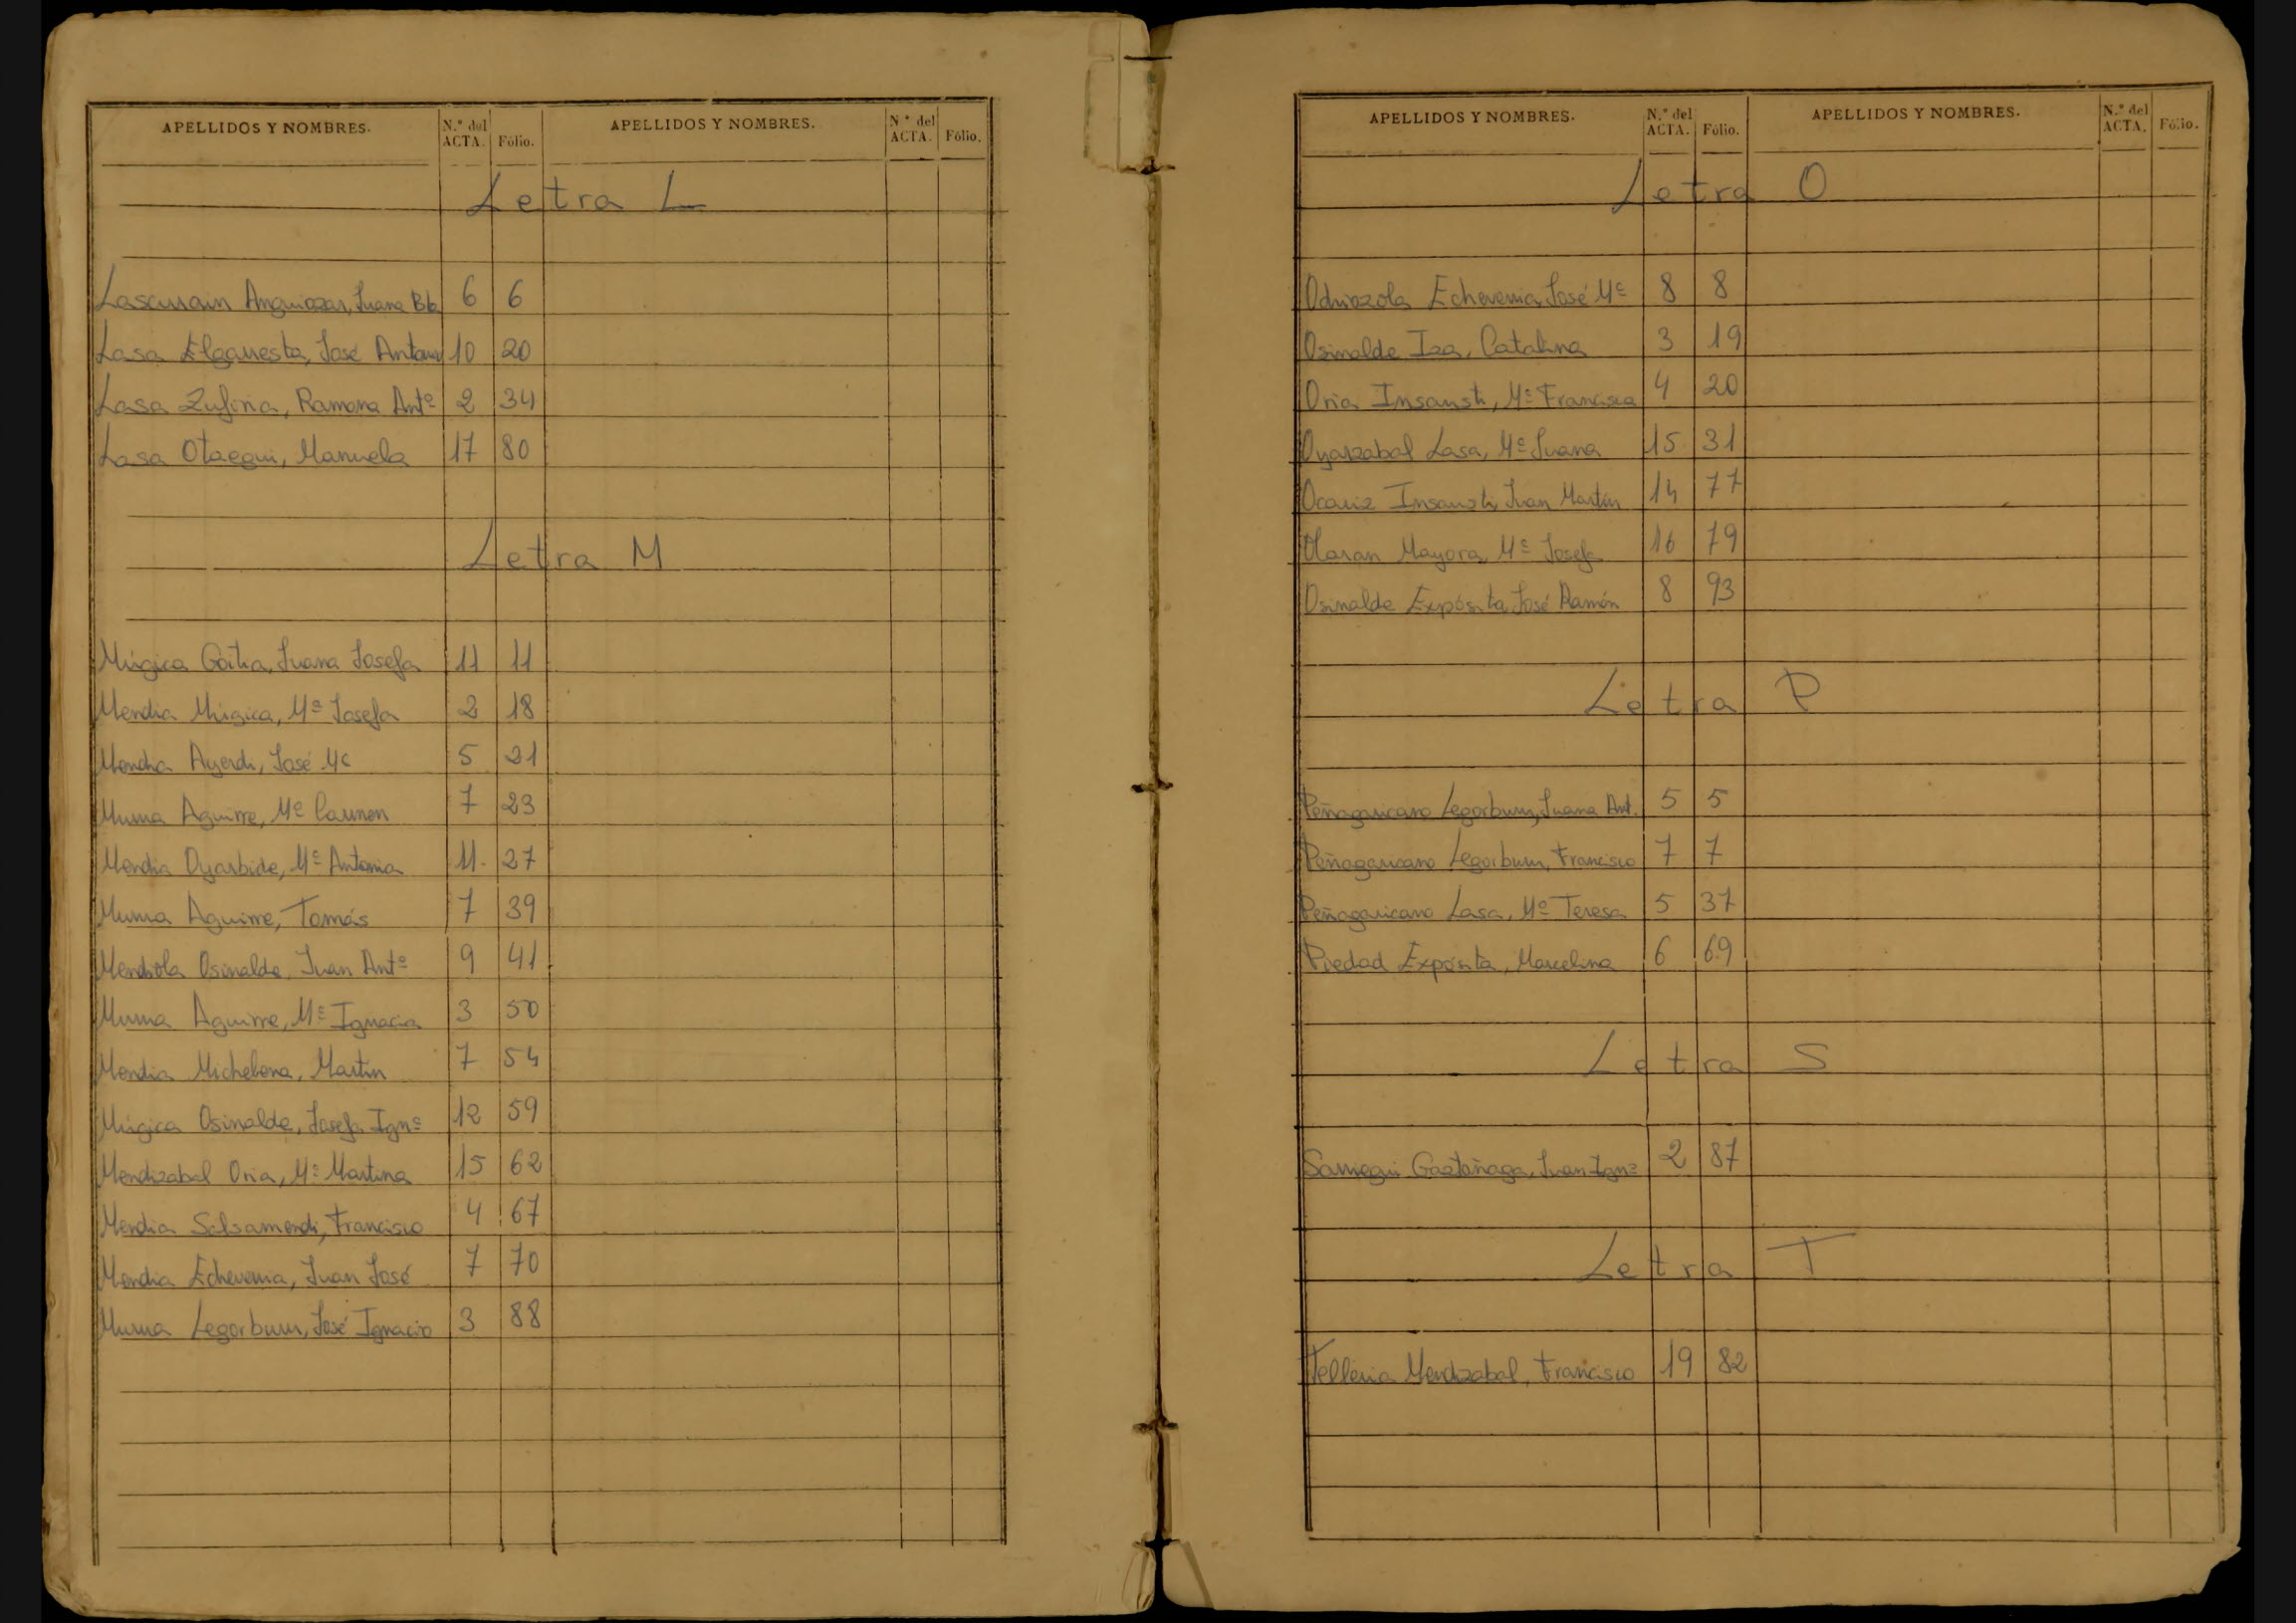 APELLIDOS Y NOMBRES. N.º del ACTA. Fólio. APELLIDOS Y NOMBRES. N.º del ACTA. Fólio.
Letra L
Lascurain Anguiozar, Juana Bba 6 6
Lasa Elgarresta, José Antonio 10 20
Lasa Zufiria, Ramona Antª 2 34
Lasa Otaegui, Manuela 17 80
Letra M
Múgica Goitia, Juana Josefa 11 11
Mendia Múgica, Mª Josefa 2 18
Mendia Ayerdi, José Mª 5 21
Murua Aguirre, Mª Carmen 7 23
Mendia Oyarbide, Mª Antonia 11 27
Murua Aguirre, Tomás 7 39
Mendiola Osinalde, Juan Antº 9 41
Murua Aguirre, Mª Ignacia 3 50
Mendia Michelena, Martin 7 54
Múgica Osinalde, Josefa Ignª 12 59
Mendizabal Oria, Mª Martina 15 62
Mendia Salsamendi, Francisco 4 67
Mendia Echeverria, Juan José 7 70
Murua Legorburu, José Ignacio 3 88
APELLIDOS Y NOMBRES. N.º del ACTA. Fólio. APELLIDOS Y NOMBRES. N.º del ACTA. Fólio.
Letra O
Odriozola Echeverria, José Mª 8 8
Osinalde Iza, Catalina 3 19
Oria Insausti, Mª Francisca 4 20
Oyarzabal Lasa, Mª Juana 15 31
Ocariz Insausti, Juan Martín 14 77
Olaran Mayora, Mª Josefa 16 79
Osinalde Expósita, José Ramón 8 93
Letra P
Peñagaricano Legorburu, Juana Ant. 5 5
Peñagaricano Legorburu, Francisco 7 7
Peñagaricano Lasa, Mª Teresa 5 37
Piedad Expósita, Marcelina 6 69
Letra S
Sarregui Gaztañaga, Juan Ignº 2 87
Letra T
Telleria Mendizabal, Francisco 19 82